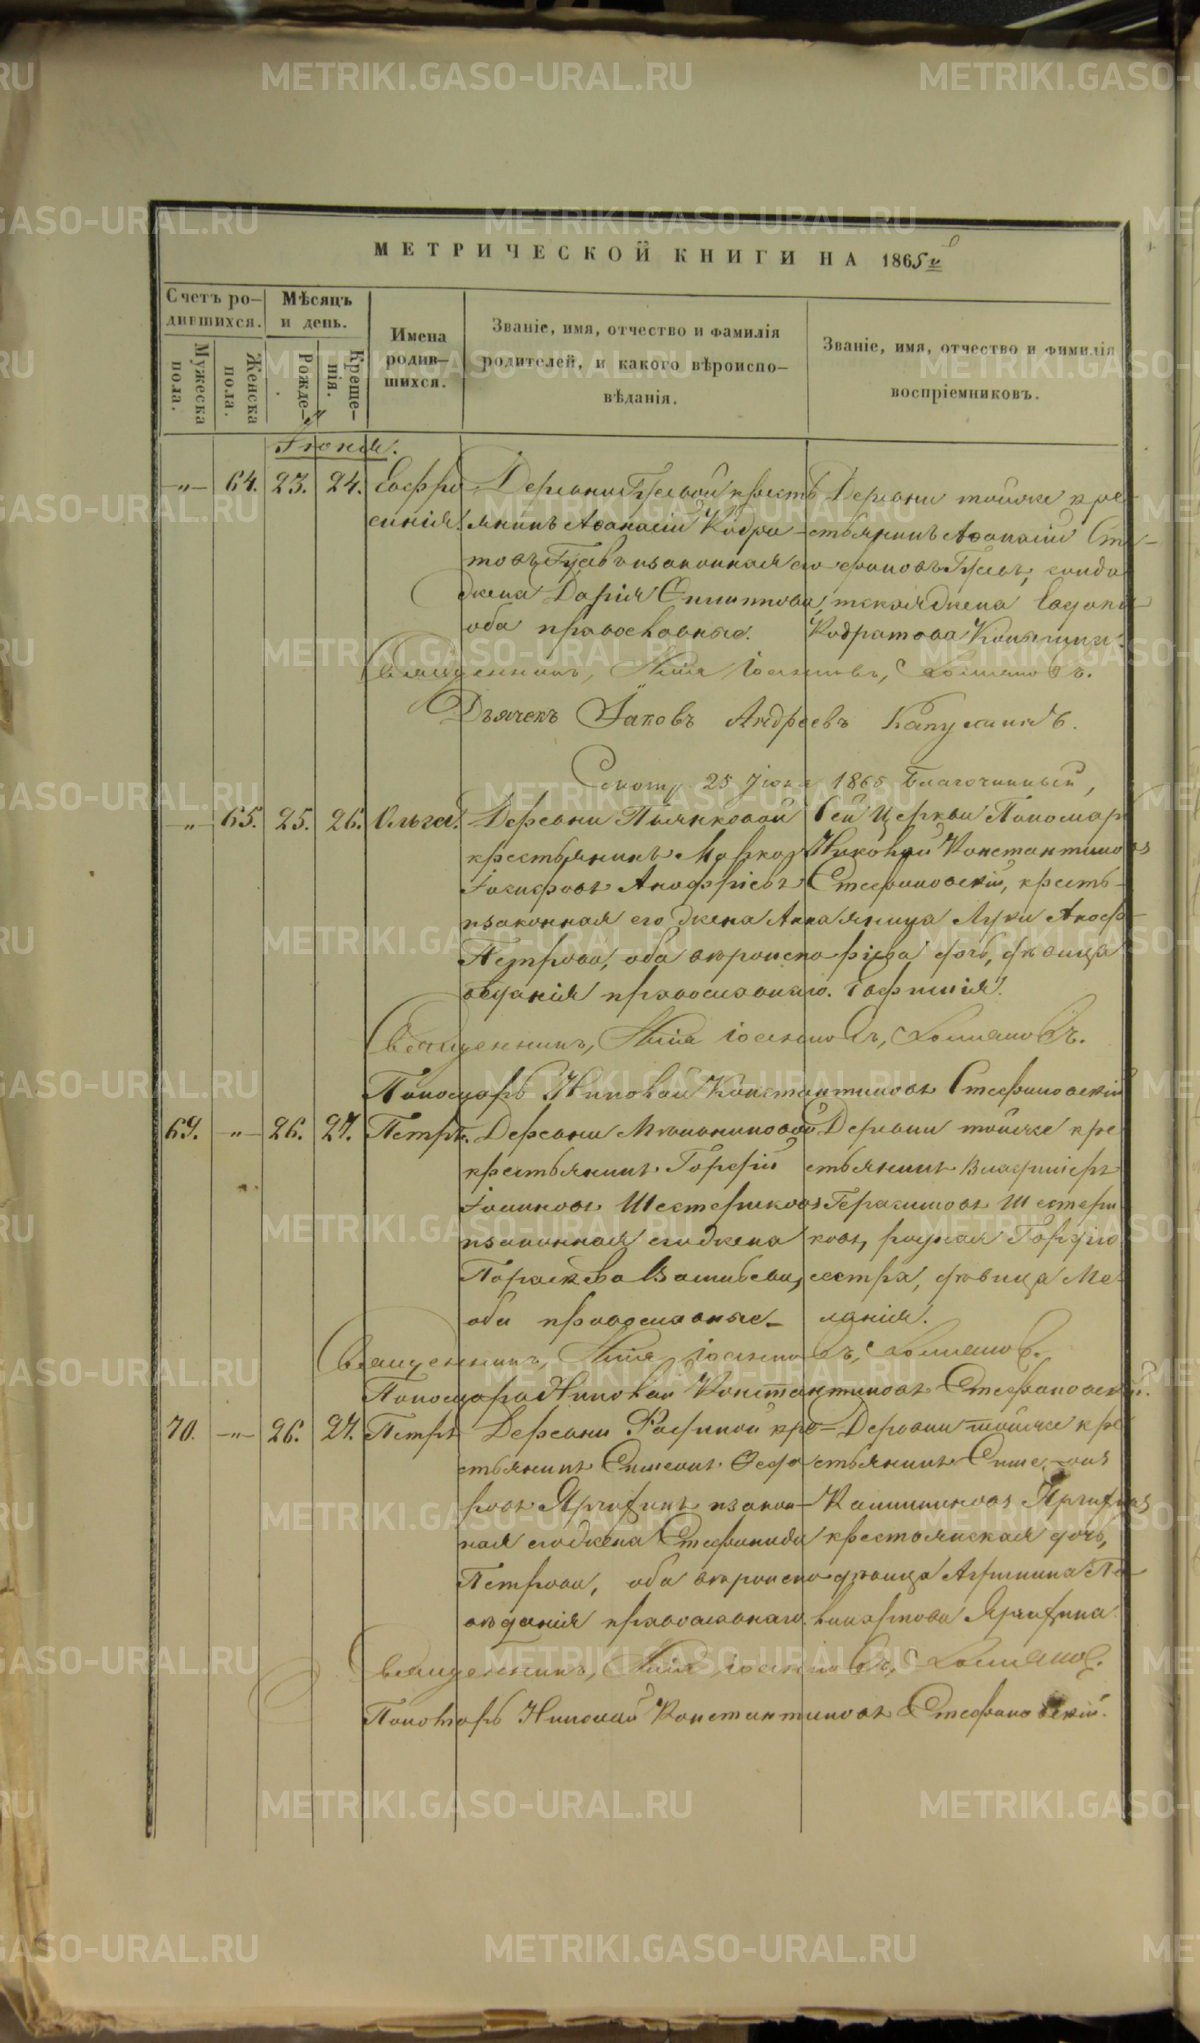 МЕТРИЧЕСКОЙ КНИГИ НА 1865й
Счетъ ро-
дившихся.
Мѣсяцъ
и день.
Имена
родив-
шихся.
Званіе, имя, отчество и фамилія
родителей, и какого вѣроиспо-
вѣданія.
Званіе, имя, отчество и фимилія
воспріемниковъ.
Мужеска
пола.
Женска
пола.
Рожде-
Креще-
нія.
Іюнія.
-"- 64. 23. 24. Евфро
синія.
Деревни Гусевой кресть
янинъ Аѳанасій Кодра-
товъ Гусевъ и законная его
жена Дарія Филиппова,
оба православные.
Деревни тойже кре-
стьянинъ Аѳанасій Сте-
фановъ Гусевъ,
жена Евдокі
Кодратова
Священникъ, Илія Іоанновъ, Холмяковъ.
Дьячекъ Іаковъ Андреевъ Капустинъ.
25 Іюня 1865 Благочинный,
-"- 65. 25. 26. Ольга.
Деревни Пьянковой
крестьянинъ Маркъ
Анофріевъ
и законная его жена Анна
Петрова, оба вѣроиспо
вѣданія православнаго.
Сей Церкви Пономар
Николай Константинов
Стефановскій, кресть-
янина Луки Аноф-
ріева дочь, дѣвица
Евфимія.
Священникъ, Илія Іоанновъ, Холмяковъ.
Пономарь Николай Константиновъ Стефановскій
69. -"- 26. 27. Петръ.
Деревни
крестьянинъ Гордій
Іоанновъ Шестериковъ
и законная его жена
Параскева Васильева,
оба православные
Деревни тойже кре
стьянинъ Владиміръ
Герасимовъ Шестери
ковъ, родная Гордію
сестра, дѣвица Ме-
ланія.
Священникъ, Илія Іоанновъ, Холмяковъ.
Пономарь Николай Константиновъ Стефановскій.
70. -"- 26. 27. Петръ
Деревни кре-
стьянинъ Симеонъ Ѳедо
ровъ Ярутинъ и закон-
ная его жена Стефанида
Петрова, оба вѣроиспо
вѣданія православнаго.
Деревни тойже кре
стьянинъ Симеонъ
Калинниковъ
крестьянская дочь,
дѣвица Агрипина
Священникъ, Илія Іоанновъ, Холмяков.
Пономарь Николай Константиновъ Стефановскій.
METRIKI.GASO-URAL.RU